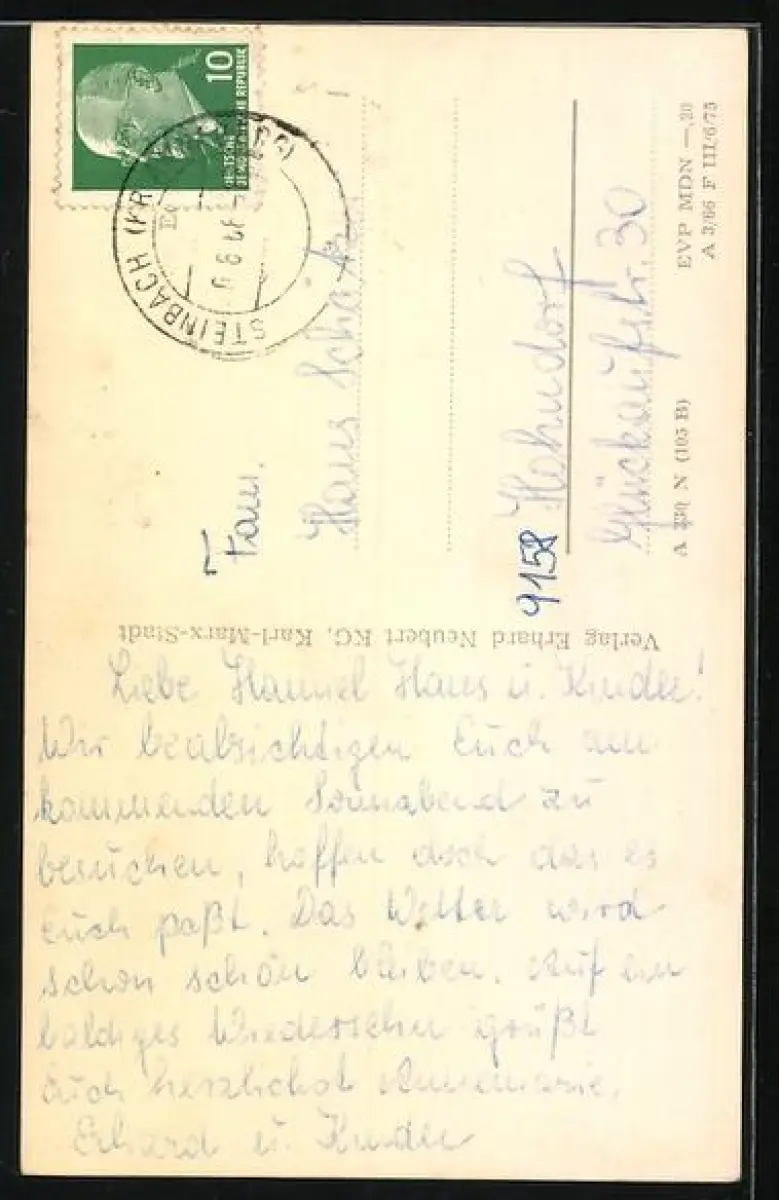 10
DEUTSCHE
DEMOKRATISCHE REPUBLIK
STEINBACH
Fam.
Hans
9158 Hohndorf
Glückaufstr. 30
EVP MDN —,20
A 3/66 F III/6/75
N (105 B)
Verlag Erhard Neubert KG, Karl-Marx-Stadt
Liebe Hannel Hans u. Kinder!
Wir beabsichtigen Euch am
kommenden Sonnabend zu
besuchen, hoffen doch das es
euch paßt. Das Wetter wird
schon schön bleiben. Auf ein
baldiges Wiedersehn grüßt
Euch herzlichst Annemarie,
Erhard u. Kinder